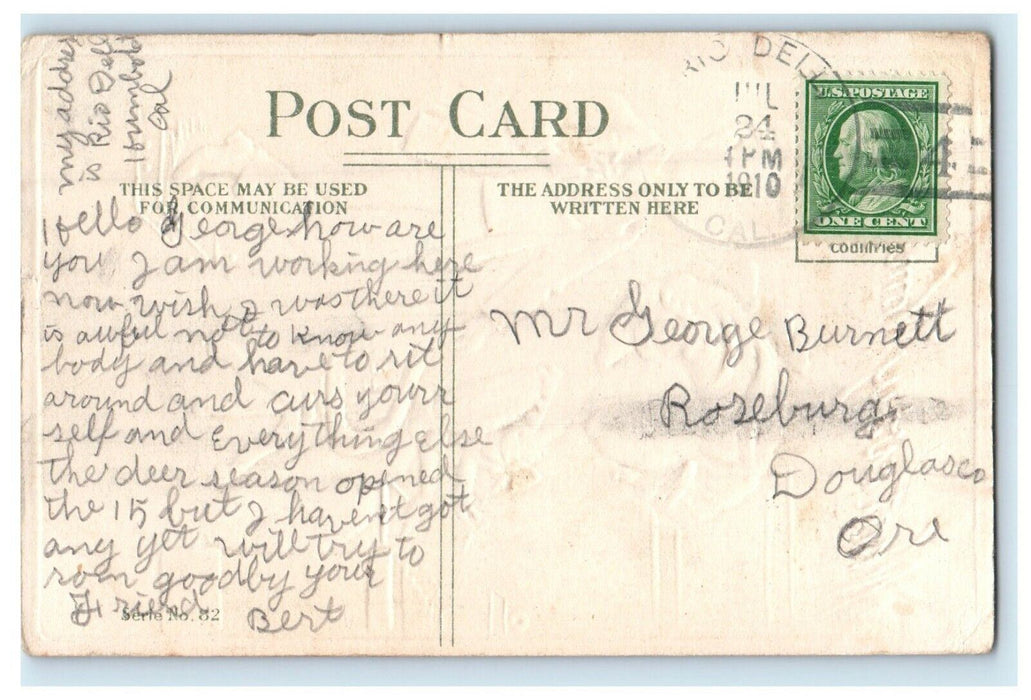 my addres
is Rio Dell
Humboldt
Cal
POST CARD
THIS SPACE MAY BE USED
FOR COMMUNICATION
THE ADDRESS ONLY TO BE
WRITTEN HERE
RIO DELL
JUL
24
1910
CAL
U.S. POSTAGE
ONE CENT
countries
4
Hello George how are
you I am working here
now wish I was there it
is awful not to know any
body and have to sit
around and curs yourr
self and everything else
the deer season opened
the 15 but I havent got
any yet will try to
goodby your
Friend
Bert
Serie No. 82
Mr George Burnett
Roseburg
Douglas co
Ore